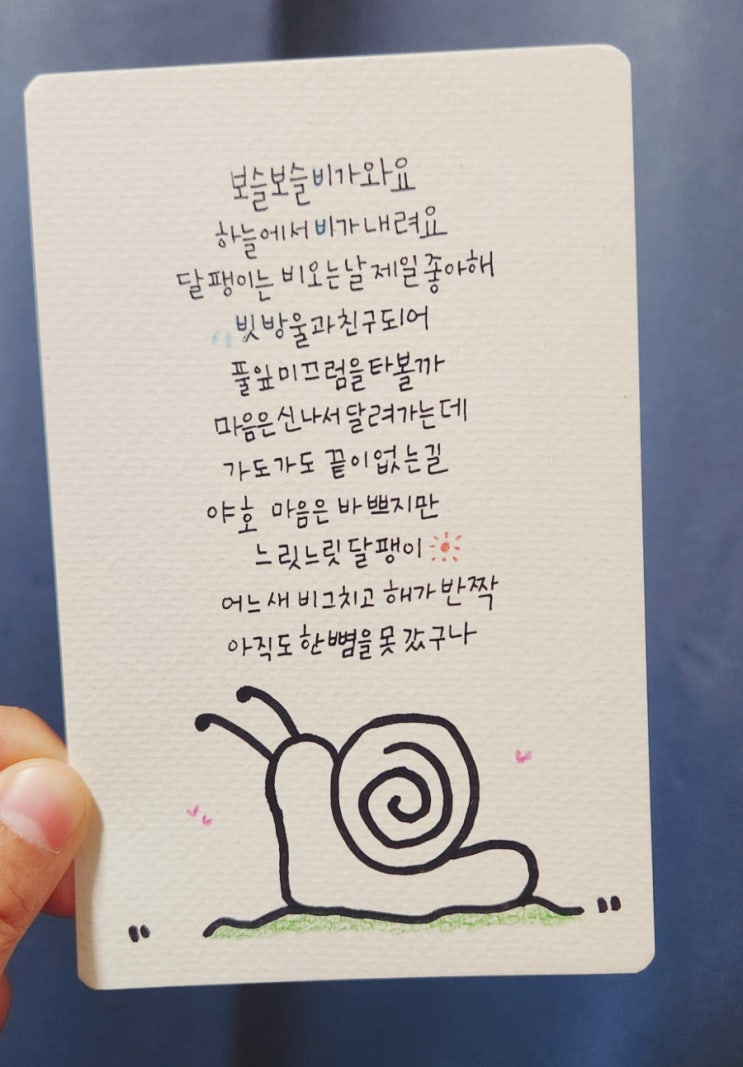 보슬보슬 비가와요
하늘에서 비가 내려요
달팽이는 비오는날 제일 좋아해
빗방울과 친구되어
풀잎 미끄럼을 타볼까
마음은 신나서 달려가는데
가도가도 끝이 없는길
야호 마음은 바쁘지만
느릿느릿 달팽이
어느새 비그치고 해가 반짝
아직도 한뼘을 못 갔구나